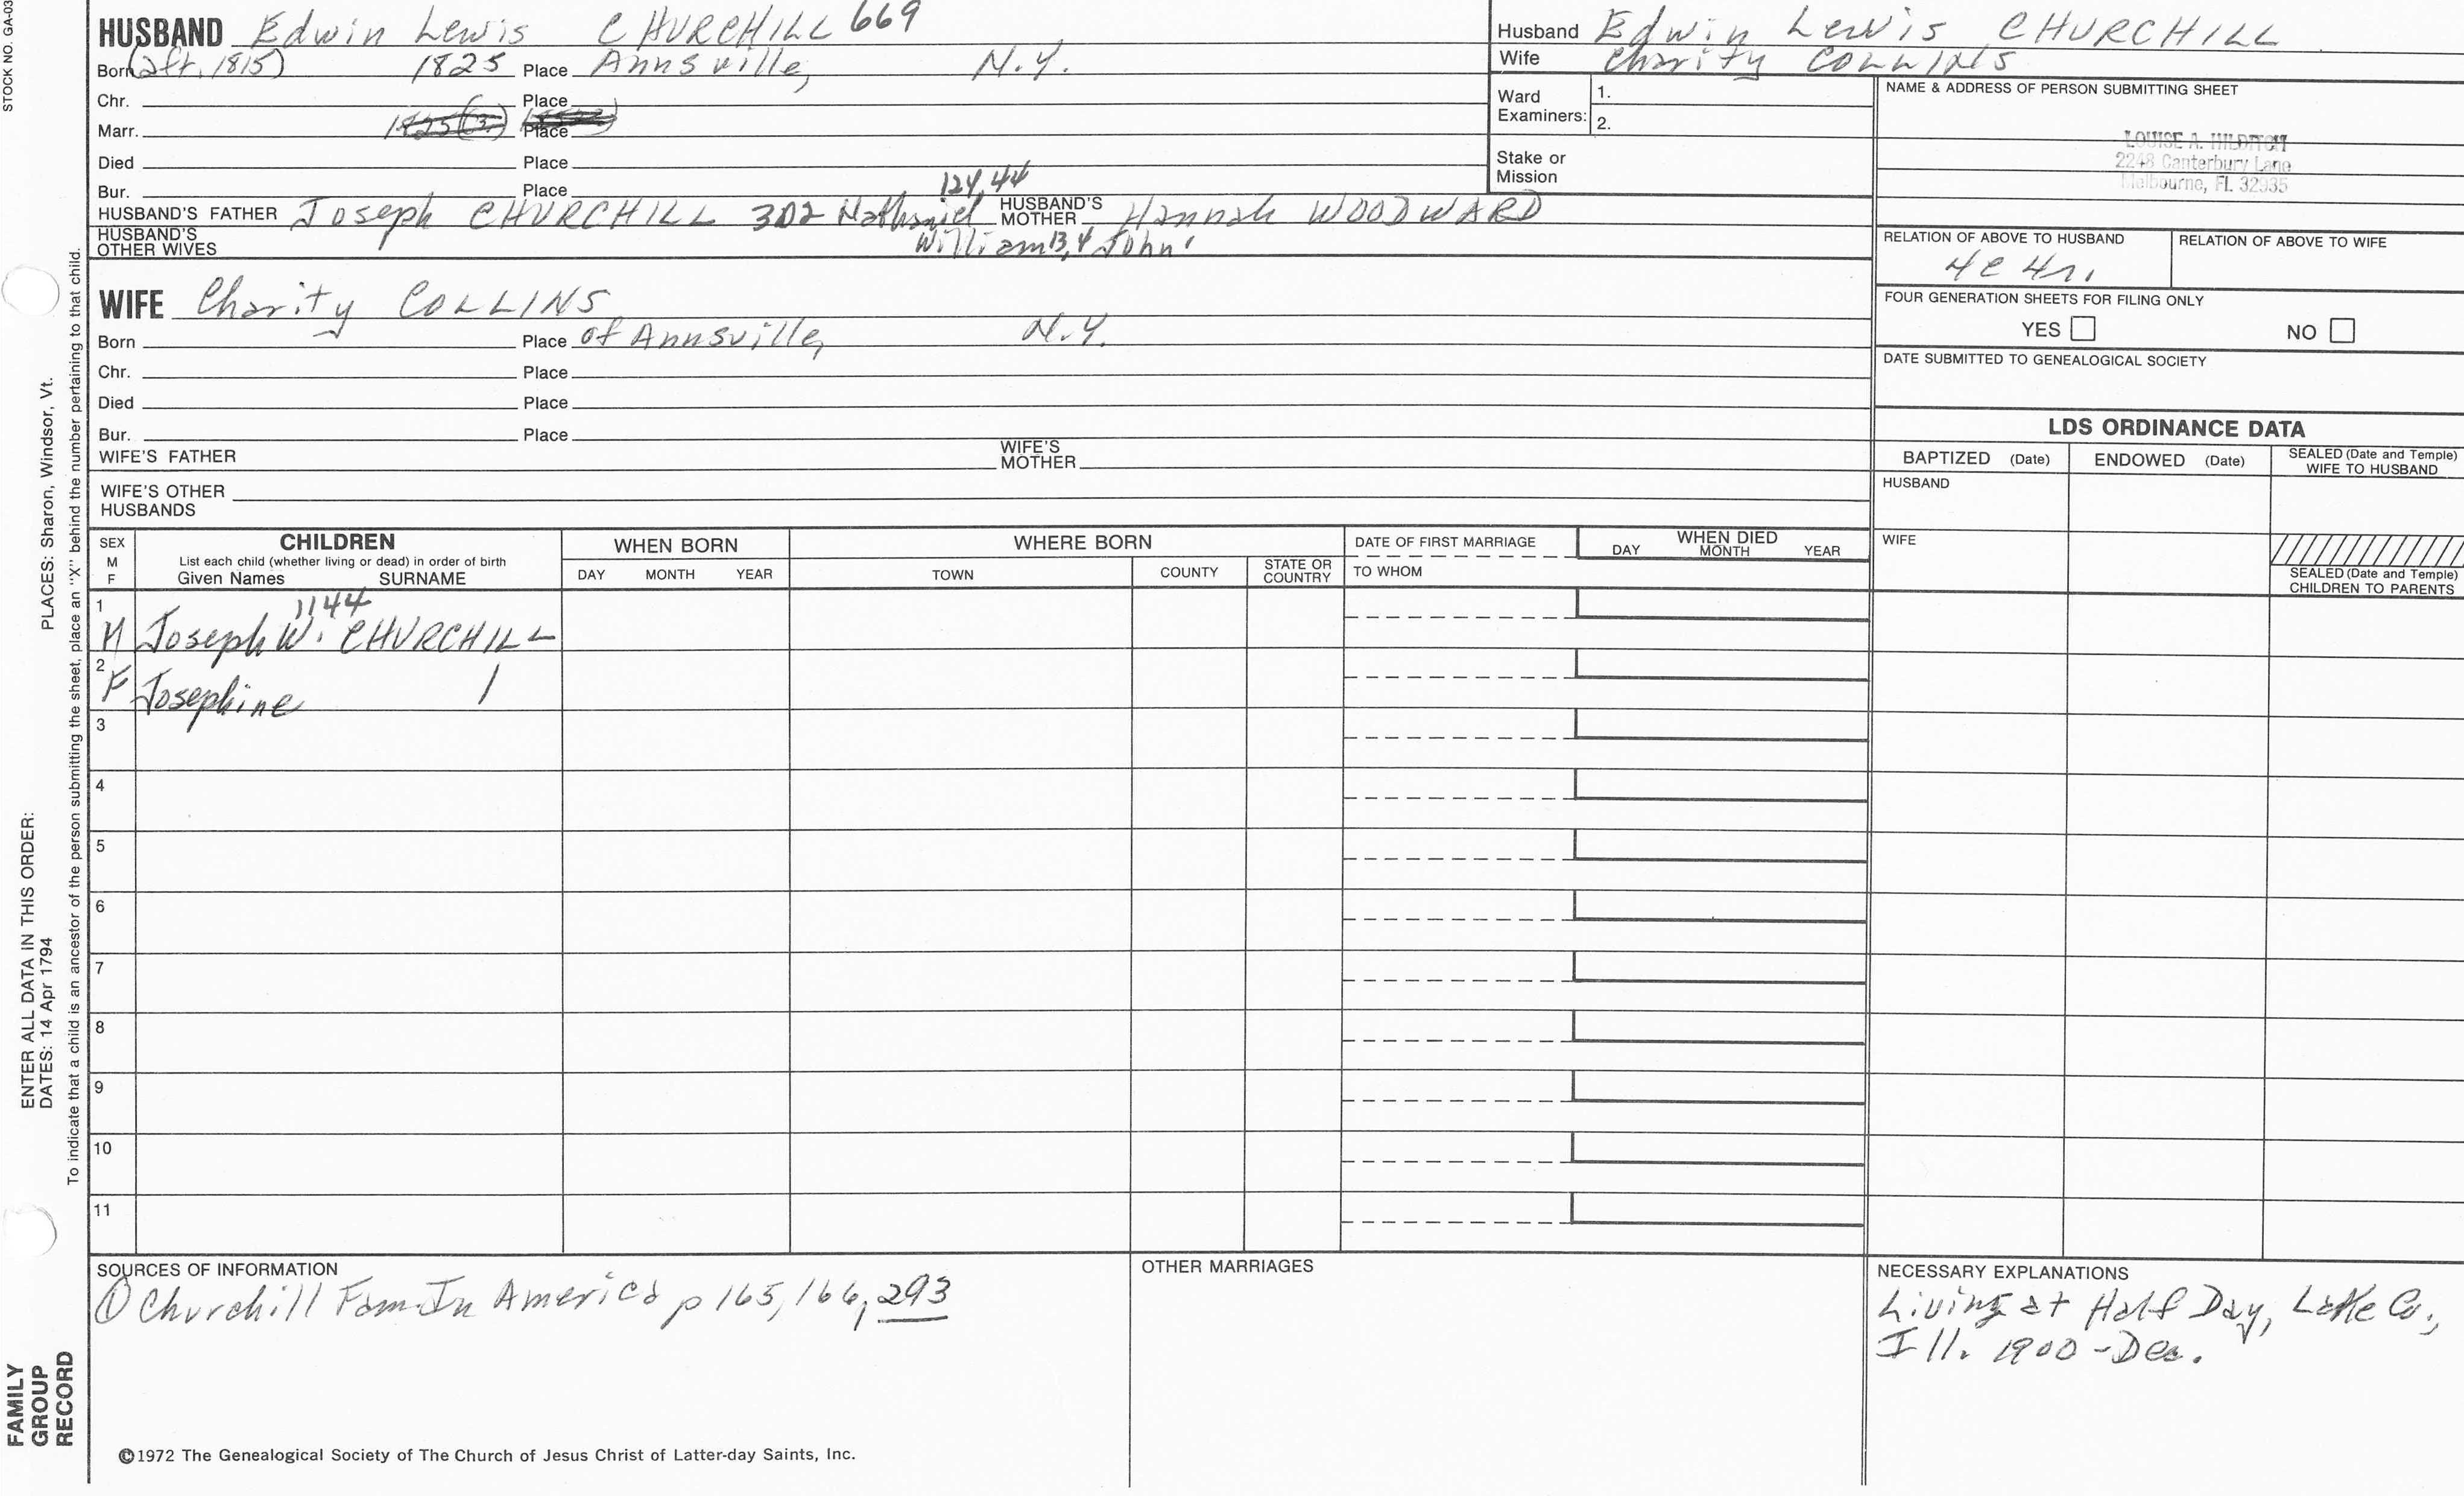 STOCK NO. GA-03
HUSBAND Edwin Lewis CHURCHILL 669
Born (aft. 1815) 1825 Place Annsville, N.Y.
Chr. Place
Marr. 1825 (3) Place
Died Place
Bur. Place
124, 44
HUSBAND'S FATHER Joseph CHURCHILL 302 Nathaniel HUSBAND'S MOTHER Hannah WOODWARD
HUSBAND'S OTHER WIVES William 13, 4 John 1
WIFE Charity COLLINS
Born Place of Annsville, N.Y.
Chr. Place
Died Place
Bur. Place
WIFE'S FATHER WIFE'S MOTHER
WIFE'S OTHER HUSBANDS
Husband Edwin Lewis CHURCHILL
Wife Charity COLLINS
Ward Examiners: 1.
2.
Stake or Mission
NAME & ADDRESS OF PERSON SUBMITTING SHEET
LOUISE A. HILDITCH
2248 Canterbury Lane
Melbourne, Fl. 32935
RELATION OF ABOVE TO HUSBAND RELATION OF ABOVE TO WIFE
4C 4r.
FOUR GENERATION SHEETS FOR FILING ONLY
YES NO
DATE SUBMITTED TO GENEALOGICAL SOCIETY
LDS ORDINANCE DATA
BAPTIZED (Date) ENDOWED (Date) SEALED (Date and Temple) WIFE TO HUSBAND
HUSBAND
WIFE
SEALED (Date and Temple) CHILDREN TO PARENTS
SEX M F
CHILDREN
List each child (whether living or dead) in order of birth
Given Names SURNAME
WHEN BORN
DAY MONTH YEAR
WHERE BORN
TOWN COUNTY STATE OR COUNTRY
DATE OF FIRST MARRIAGE
TO WHOM
WHEN DIED
DAY MONTH YEAR
1144
1 M Joseph W. CHURCHILL
2 F Josephine /
3
4
5
6
7
8
9
10
11
SOURCES OF INFORMATION
① Churchill Fam In America p 165, 166, 293
OTHER MARRIAGES
NECESSARY EXPLANATIONS
Living at Half Day, Lake Co.,
Ill. 1900 - Dec.
©1972 The Genealogical Society of The Church of Jesus Christ of Latter-day Saints, Inc.
FAMILY GROUP RECORD
ENTER ALL DATA IN THIS ORDER:
DATES: 14 Apr 1794
PLACES: Sharon, Windsor, Vt.
To indicate that a child is an ancestor of the person submitting the sheet, place an "X" behind the number pertaining to that child.